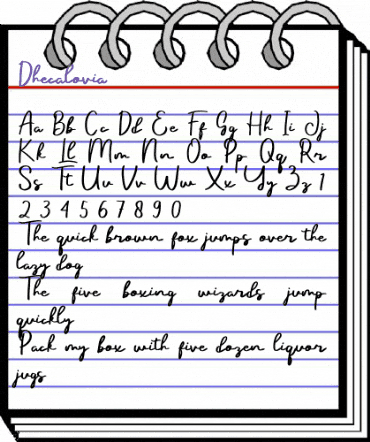 Dhecalovia
Aa Bb Cc Dd Ee Ff Gg Hh Ii Jj
Kk Ll Mm Nn Oo Pp Qq Rr
Ss Tt Uu Vv Ww Xx Yy Zz 1
2 3 4 5 6 7 8 9 0
The quick brown fox jumps over the
lazy dog
The five boxing wizards jump
quickly
Pack my box with five dozen liquor
jugs